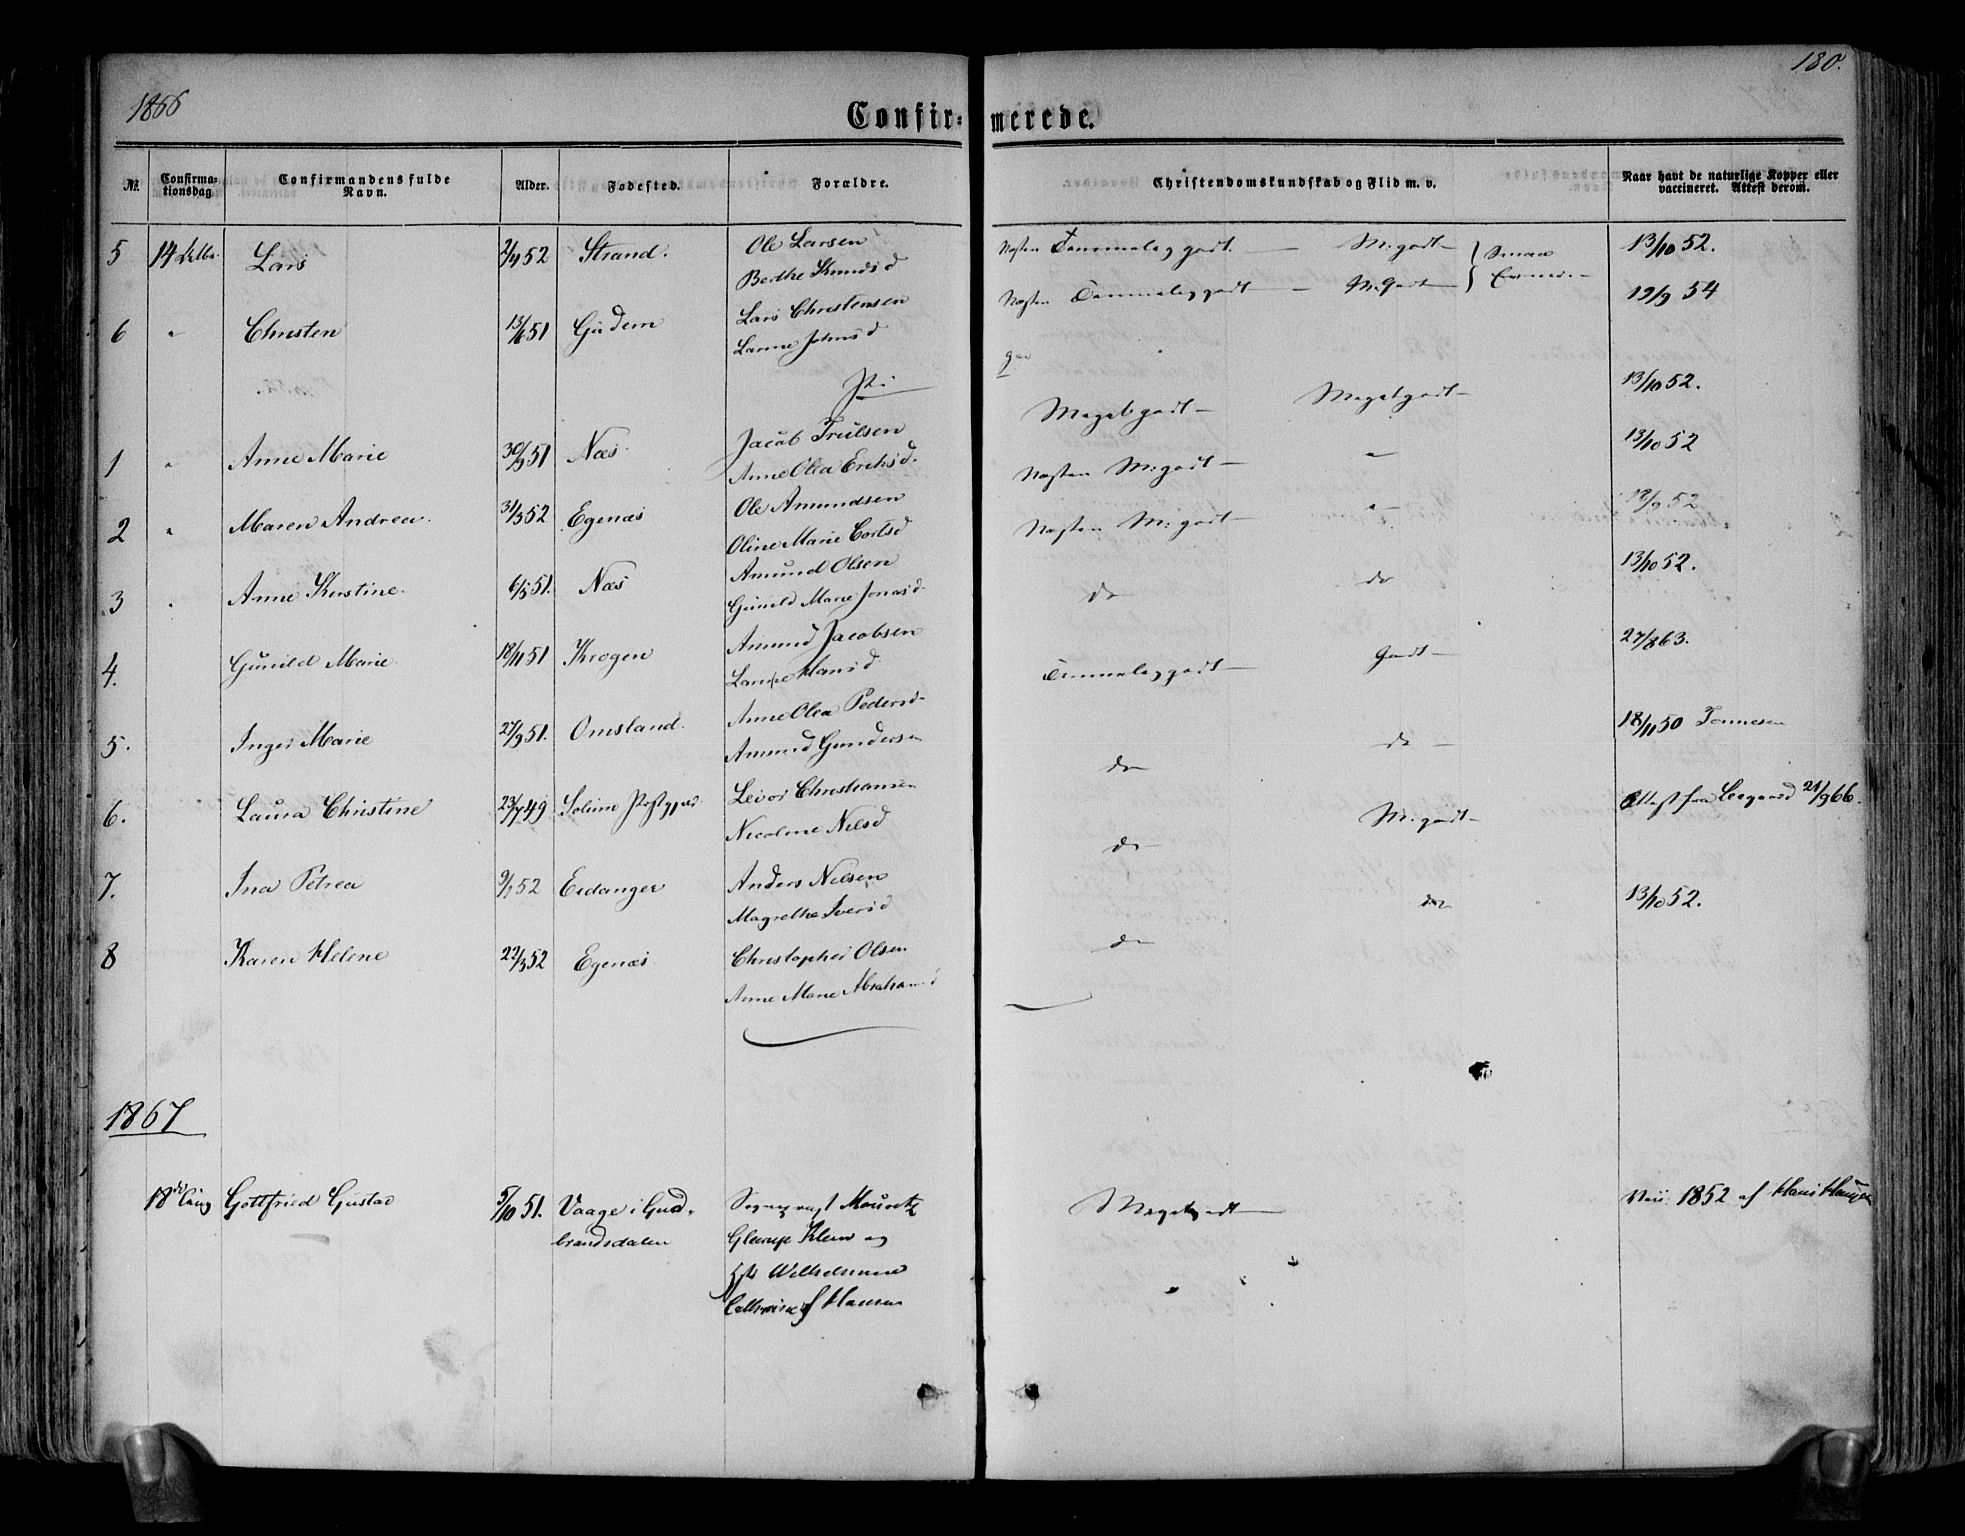 1866
Confir=merede.
130.
No.
Confirma-
tionsdag
Confirmandens fulde
Navn.
Alder.
Fødested.
Forældre.
Christendomskundskab og Flid m. v.
Naar havt de naturlige Kopper eller
vaccineret. Attest derom.
5 14 Lars 2/4 52 Strand. Ole Larsen Næsten Temmelig godt. — M. godt — 13/10 52.
Berthe Knudsd
6 " Christen 13/6 51 Gudem Lars Christensen Næsten Temmelig godt — M. Godt — 19/9 54
Larine Johnsd
Pi
Meget godt — Meget godt — 13/10 52.
1 " Anne Marie 30/9 51 Næs Jacob Trulsen Næsten M. godt — " 13/10 52
Anne Olea Eriksd.
2 " Maren Andrea. 31/3 52 Egenæs Ole Amundsen Næsten M. godt — " 12/9 52
Oline Marie Cortsd
3 Anne Kirstine. 6/5 51. Næs Amund Olsen do do 13/10 52.
Gunild Marie Jonasd
4. Gunild Marie 18/11 51 Krogen Amund Jacobsen Temmelig godt — Godt — 27/8 63.
Larine Hansd
5. Inger Marie 27/9 51. Omsland. Anne Olea Pedersd do do — 18/11 50 Tonnesen
Amund Gundersen
6. Laura Christine 23/7 49 Solum Leior Christiansen do M. godt — Attest fra Leegaard 21/9 66.
Nicoline Nilsd
7. Ina Petrea 9/1 52 Eidanger Anders Nilsen do 13/10 52.
Magrethe Iversd
8 Karen Helene 22/3 52 Egenæs Christopher Olsen do
Anne Marie Abrahamsd
1867
18de Aug Gottfried Gustav 5/10 51. Vaage i Gud- Sogneprest Mouritz Meget godt — 1852 af Hans Hansen
brandsdalen Glerup Klem og
Wilhelmine
Cathrine f Hansen